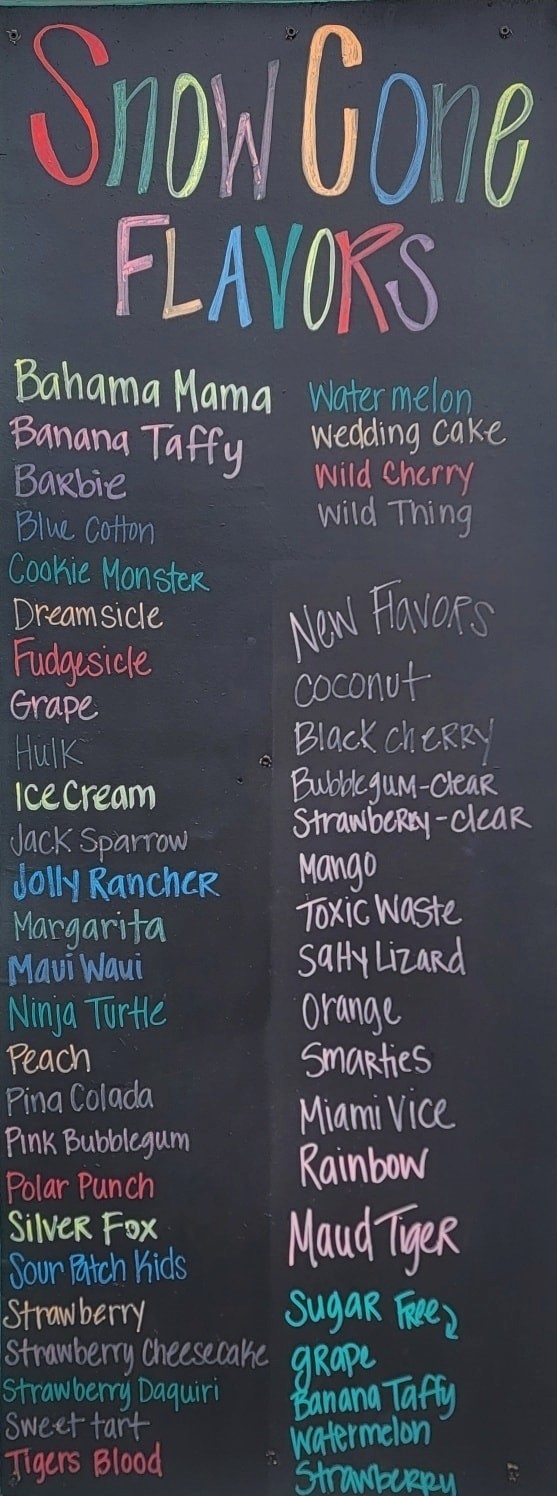 Snow Cone
FLAVORS
Bahama Mama
Banana Taffy
Barbie
Blue Cotton
Cookie Monster
Dreamsicle
Fudgesicle
Grape
Hulk
Ice Cream
Jack Sparrow
Jolly Rancher
Margarita
Maui Waui
Ninja Turtle
Peach
Pina Colada
Pink Bubblegum
Polar Punch
Silver Fox
Sour Patch Kids
Strawberry
Strawberry Cheesecake
Strawberry Daquiri
Sweet tart
Tigers Blood
Water melon
Wedding Cake
Wild Cherry
Wild Thing
New Flavors
Coconut
Black Cherry
Bubblegum-Clear
Strawberry-Clear
Mango
Toxic Waste
Salty Lizard
Orange
Smarties
Miami Vice
Rainbow
Maud Tiger
Sugar Free
grape
Banana Taffy
Watermelon
Strawberry